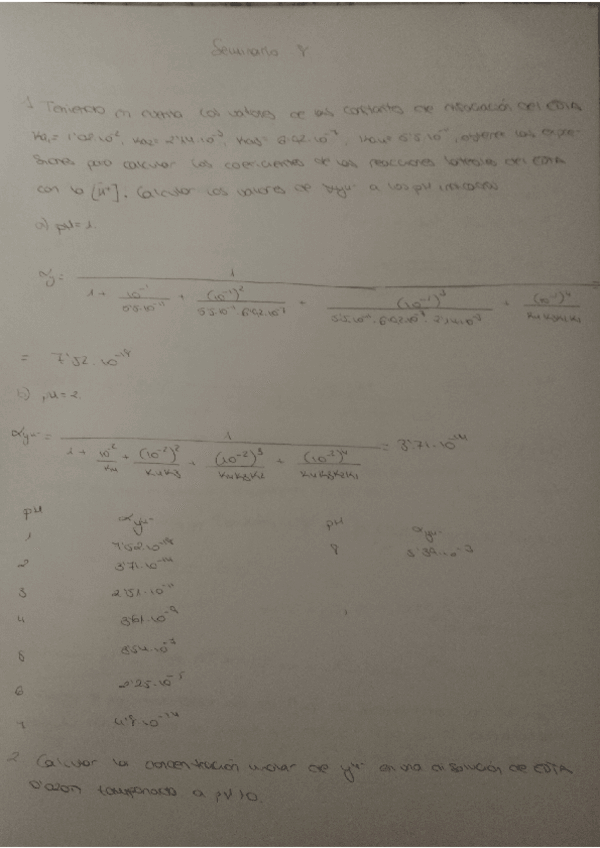 Seminario 8
1 Teniendo en cuenta los valores de las constantes de disociación del EDTA
Ka₁= 1'02·10⁻², Ka₂= 2'14·10⁻³, Ka₃= 6'02·10⁻⁷, Ka₄= 5'5·10⁻¹¹, las expre-
siones para calcular los coeficientes de las reacciones laterales del EDTA
con lo [H⁺]. Calcular los valores de αy⁴⁻ a los pH indicados
a) pH = 1.
αy = 1
1 + 10⁻¹ / 5'5·10⁻¹¹ + (10⁻¹)² / 5'5·10⁻¹¹·6'02·10⁻⁷ + (10⁻¹)³ / 5'5·10⁻¹¹·6'02·10⁻⁷·2'14·10⁻³ + (10⁻¹)⁴ / K₄K₃K₂K₁
= 7'52·10⁻¹⁸
b) pH = 2
αy⁴⁻ = 1 / 1 + 10⁻²/K₄ + (10⁻²)²/K₄K₃ + (10⁻²)³/K₄K₃K₂ + (10⁻²)⁴/K₄K₃K₂K₁ = 3'71·10⁻¹⁴
pH αy⁴⁻ pH αy⁴⁻
1 7'52·10⁻¹⁸ 8
2 3'71·10⁻¹⁴
3 2'51·10⁻¹¹
4 3'61·10⁻⁹
5
6 2'25·10⁻⁵
7
2 Calcular la concentración molar de y⁴⁻ en una disolución de EDTA
tamponada a pH 10.